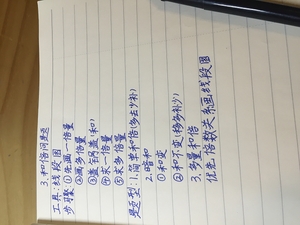 3.和倍问题
工具:线段图
步骤①先画一倍量
②画多倍量
③盖"锅盖"(和)
④求一倍量
⑤求多倍量
题型:1.简单和倍(多去少补)
2.暗和
①和变
②和不变(移多补少)
3.多量和倍
优先倍数关系画线段图